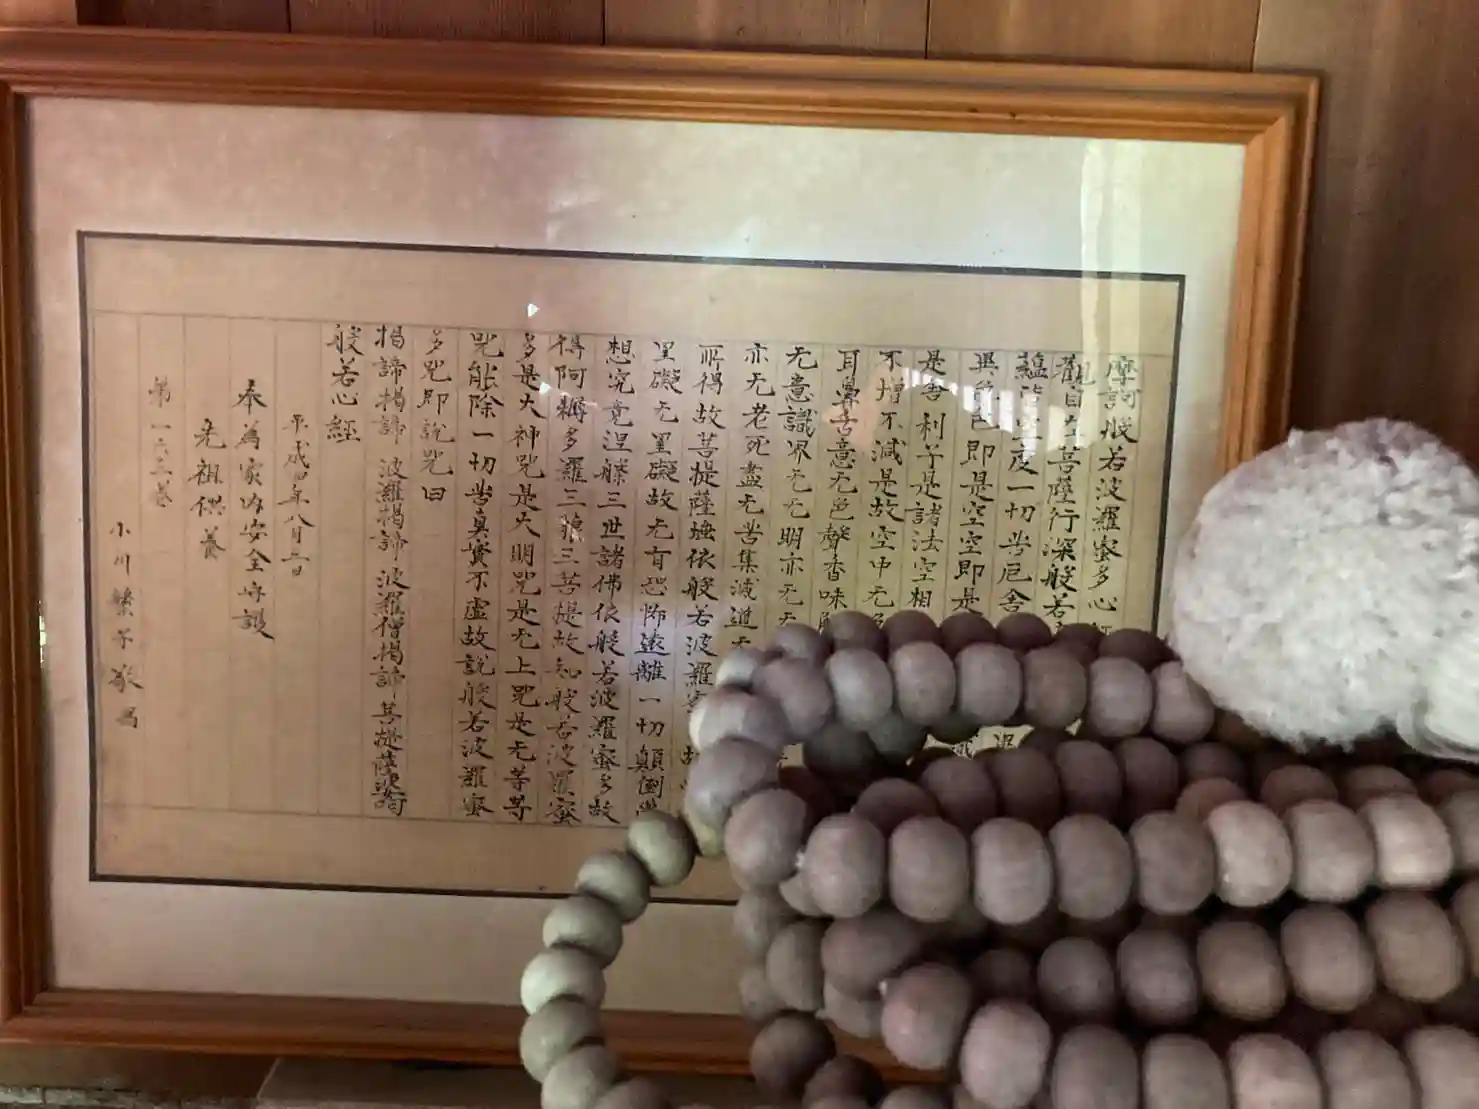 摩訶般若波羅蜜多心
觀自在菩薩行深般若
蘊皆空度一切苦厄舍
異色色即是空空即是
是舍利子是諸法空相
不增不減是故空中无
耳鼻舌意无色聲香味
无意識界无无明亦无无
亦无老死盡无苦集滅道无
所得故菩提薩埵依般若波羅蜜 故
罣礙无罣礙故无有恐怖遠離一切顛倒
想究竟涅槃三世諸佛依般若波羅蜜多故
得阿耨多羅三藐三菩提故知般若波羅蜜
多是大神咒是大明咒是无上咒是无等等
咒能除一切苦真實不虛故説般若波羅蜜
多咒即説咒曰
揭諦揭諦 波羅揭諦 波羅僧揭諦 菩提薩婆訶
般若心經
平成四年八月二日
奉為家内安全守護
先祖供養
第一六三卷
小川 敬写